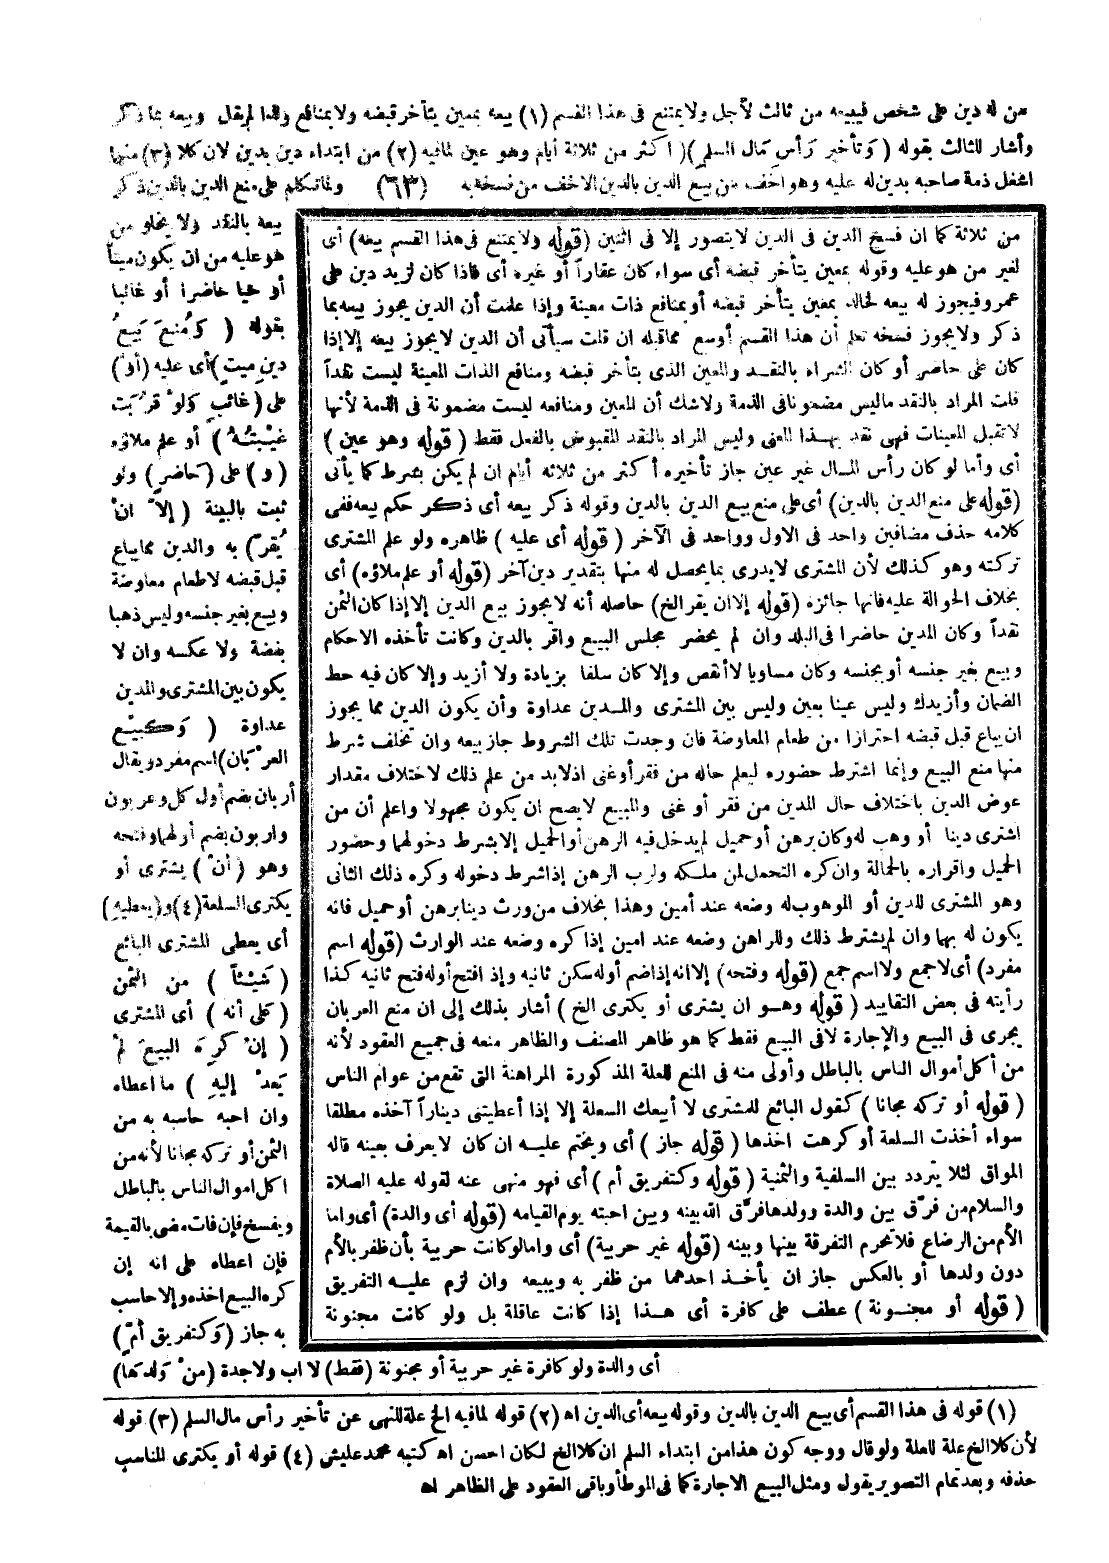 من له دين على شخص فيبيعه من ثالث لأجل ولا يمتنع فى هذا القسم (١) بيعه بمعين يتأخر قبضه ولا بمنافع ولذا لم يقل وبيعه بما ذكر
وأشار للثالث بقوله ( وَتأخير رَأسِ مَال السلم )( اكثر من ثلاثة أيام وهو عين لمافيه (٢) من ابتداء دين بدين لان كلا (٣) منها
اشغل ذمة صاحبه بدين له عليه وهو اخف من بيع الدين بالدين الاخف من فسخه به (٦٣) ولما تكلم على منع الدين بالدين ذكر
بيعه بالنقد ولا يخلو من
هو عليه من ان يكون ميتاً
أو حيا حاضرا أو غائبا
بقوله ( وَمُنعَ بَيعُ
دينِ ميتٍ ) أى عليه (أوْ)
على (غائبٍ وَلوْ قرُبَت
غيْبتُهُ ) أو علم ملاؤه
( و ) على (حَاضرٍ) ولو
ثبت بالبينة ( إلاّ انْ
يُقرّ) به والدين مما يباع
قبل قبضه لا طعام معاوضة
وبيع بغير جنسه وليس ذهبا
بفضة ولا عكسه وان لا
يكون بين المشترى والمدين
عداوة ( وَكبَيْع
العرْبَان) اسم مفرد ويقال
أربان بضم أول كل وعربون
واربون بضم أولهما وفتحه
وهو ( أنْ ) يشترى أو
يكترى السلعة (٤) و(يعطيه)
أى يعطى المشترى البائع
( شَيْئاً ) من الثمن
( عَلى أنه ) أى المشترى
( إنْ كرِهَ البيعَ لمْ
يَعدْ إليهِ ) ما اعطاه
وان احبه حاسبه به من
الثمن أو تركه مجانا لأنه من
اكل اموال الناس بالباطل
ويفسخ فإن فات مضى بالقيمة
فإن اعطاه على انه إن
كره البيع اخذه وإلا حاسب
به جاز (وَكتفريق أمّ)
أى والدة ولو كافرة غير حربية أو مجنونة (فقط) لا اب ولا جدة (منْ وَلدهَا)
من ثلاثة كما ان فسخ الدين فى الدين لا يتصور إلا فى اثنين (قوله ولا يمتنع فى هذا القسم بيعه) أى
لغير من هو عليه وقوله بمعين يتأخر قبضه أى سواء كان عقاراً أو غيره أى فاذا كان لزيد دين على
عمرو فيجوز له بيعه لخالد بمعين يتأخر قبضه أو بمنافع ذات معينة وإذا علمت أن الدين يجوز بيعه بما
ذكر ولا يجوز فسخه تعلم أن هذا القسم أوسع مما قبله ان قلت سيأتى أن الدين لا يجوز بيعه إلا إذا
كان على حاضر أو كان الشراء بالنقد والمعين الذى يتأخر قبضه ومنافع الذات المعينة ليست نقداً
قلت المراد بالنقد ما ليس مضمونا فى الذمة ولا شك أن المعين ومنافعه ليست مضمونة فى الذمة لأنها
لا تقبل المعينات فهى نقد بهذا المعنى وليس المراد بالنقد المقبوض بالفعل فقط ( قوله وهو عين )
أى وأما لو كان رأس المال غير عين جاز تأخيره أكثر من ثلاثة أيام ان لم يكن بشرط كما يأتى
(قوله على منع الدين بالدين) أى على منع بيع الدين بالدين وقوله ذكر بيعه أى ذكر حكم بيعه ففى
كلامه حذف مضافين واحد فى الاول وواحد فى الآخر ( قوله أى عليه ) ظاهره ولو علم المشترى
تركته وهو كذلك لأن المشترى لا يدرى بما يحصل له منها بتقدير دين آخر (قوله أو علم ملاؤه) أى
بخلاف الحوالة عليه فانها جائزه (قوله إلا ان يقر الخ) حاصله أنه لا يجوز بيع الدين إلا إذا كان الثمن
نقداً وكان المدين حاضرا فى البلد وان لم يحضر مجلس البيع واقر بالدين وكانت تأخذه الاحكام
وبيع بغير جنسه أو بجنسه وكان مساويا لا أنقص وإلا كان سلفا بزيادة ولا أزيد وإلا كان فيه حط
الضمان وأزيدك وليس عينا بعين وليس بين المشترى والمدين عداوة وأن يكون الدين مما يجوز
ان يباع قبل قبضه احترازا من طعام المعاوضة فان وجدت تلك الشروط جاز بيعه وان تخلف شرط
منها منع البيع وإنما اشترط حضوره ليعلم حاله من فقر أو غنى اذ لا بد من علم ذلك لاختلاف مقدار
عوض الدين باختلاف حال المدين من فقر أو غنى والمبيع لا يصح ان يكون مجهولا واعلم أن من
اشترى دينا أو وهب له وكان برهن أو حميل لم يدخل فيه الرهن أو الحميل إلا بشرط دخولهما وحضور
الحميل واقراره بالحمالة وان كره التحمل لمن ملكه ولرب الرهن إذا شرط دخوله وكره ذلك الثانى
وهو المشترى للدين أو الموهوب له وضعه عند أمين وهذا بخلاف من ورث دينا برهن أو حميل فانه
يكون له بهما وان لم يشترط ذلك وللراهن وضعه عند امين إذا كره وضعه عند الوارث (قوله اسم
مفرد) أى لا جمع ولا اسم جمع (قوله وفتحه) إلا انه إذا ضم أوله سكن ثانيه وإذ افتح أوله فتح ثانيه كذا
رأيته فى بعض التقاييد ( قوله وهو ان يشترى أو يكترى الخ ) أشار بذلك إلى ان منع العربان
يجرى فى البيع والإجارة لا فى البيع فقط كما هو ظاهر المصنف والظاهر منعه فى جميع العقود لأنه
من أكل أموال الناس بالباطل وأولى منه فى المنع للعلة المذكورة المراهنة التى تقع من عوام الناس
( قوله أو تركه مجانا ) كقول البائع للمشترى لا أبيعك السلعة إلا إذا أعطيتنى ديناراً آخذه مطلقا
سواء أخذت السلعة أو كرهت اخذها ( قوله جاز ) أى ويختم عليه ان كان لا يعرف بعينه قاله
المواق لئلا يتردد بين السلفية والثمنية ( قوله وكتفريق أم ) أى فهو منهى عنه لقوله عليه الصلاة
والسلام من فرّق بين والدة وولدها فرّق الله بينه وبين احبته يوم القيامه (قوله أى والدة) أى واما
الأم من الرضاع فلا تحرم التفرقة بينها وبينه (قوله غير حربية) أى واما لو كانت حربية بأن ظفر بالأم
دون ولدها أو بالعكس جاز ان يأخذ احدهما من ظفر به ويبيعه وان لزم عليه التفريق
( قوله أو مجنونة ) عطف على كافرة أى هذا إذا كانت عاقلة بل ولو كانت مجنونة
(١) قوله فى هذا القسم أى بيع الدين بالدين وقوله بيعه أى الدين اه (٢) قوله لما فيه الخ علة للنهى عن تأخير رأس مال السلم (٣) قوله
لأن كلا الخ علة للعلة ولو قال ووجه كون هذا من ابتداء السلم ان كلا الخ لكان احسن اه كتبه محمد عليش (٤) قوله أو يكترى المناسب
حذفه وبعد تمام التصوير يقول ومثل البيع الاجارة كما فى الموطأ وباقى العقود على الظاهر اه